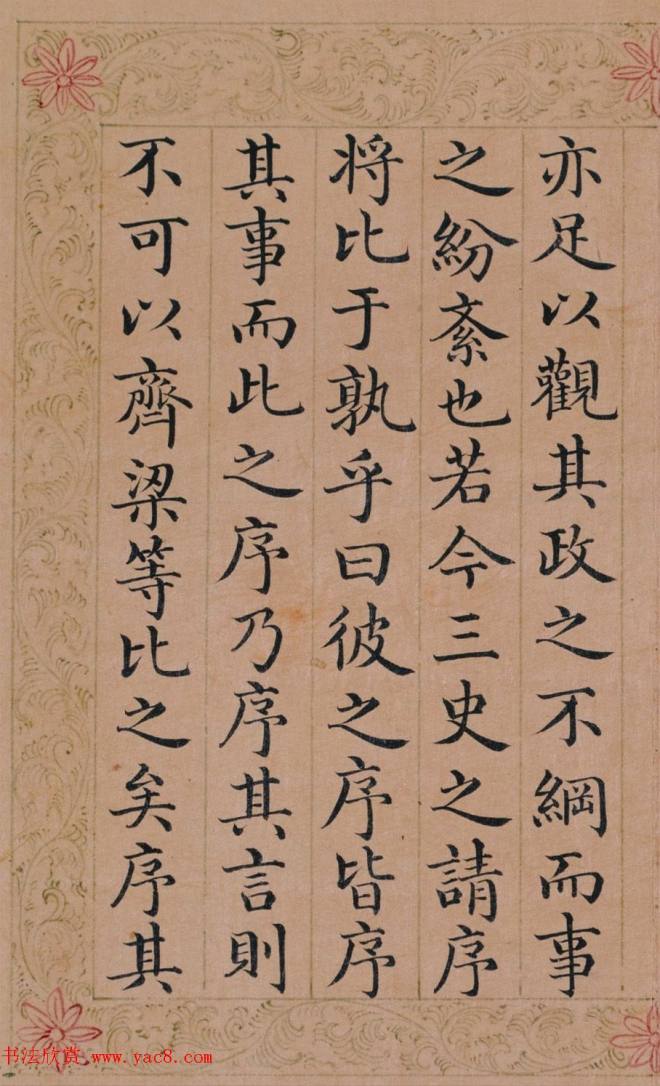 亦足以觀其政之不綱而事
之紛紊也若今三史之請序
将比于孰乎曰彼之序皆序
其事而此之序乃序其言則
不可以齊梁等比之矣序其
书法欣赏 www.yac8.com